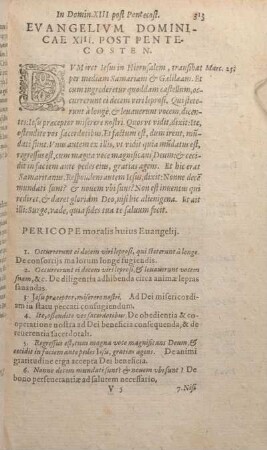 In Domin. XIII post Pentecost. 313
EVANGELIVM DOMINI-
CAE XIII. POST PENTE-
COSTEN.
DVM iret Iesus in Hierusalem, transibat
per mediam Samariam & Galilæam. Et
cum ingrederetur quoddam castellum,
occurrerunt ei decem viri leprosi, Qui stete-
runt à longè, & leuauerunt vocem, dicen-
tes: Iesu præceptor miserere nostri. Quos vt vidit, dixit: Ite,
ostendite vos sacerdotibus. Et factum est, dum irent, mūda-
ti sunt. Vnus autem ex illis, vt vidit quia mūdatus est,
regressus est, cum magna voce magnificans Deum, & ceci-
dit in faciem ante pedes eius, gratias agens. Et hic erat
Samaritanus. Respondens autem Iesus, dixit: Nonne decē
mundati sunt? & nouem vbi sunt? Non est inuentus qui
rediret, & daret gloriam Deo, nisi hic alienigena. Et ait
illi: Surge, vade, quia fides tua te saluum fecit.
PERICOPE moralis huius Euangelij.
1. Occurrerunt ei decem viri leprosi, qui steterunt à longe.
De consortijs malorum longe fugiendis.
2. Occurrerunt ei decem viri leprosi, & leuauerunt vocem
suam, &c. De diligentia adhibenda circa animæ lepras
sanandas.
3 Iesu præceptor, miserere nostri. Ad Dei misericordi-
am in statu peccati confugiendum.
4. Ite, ostendite vos sacerdotibus. De obedientia & co-
operatione nostra ad Dei beneficia consequenda, & de
reuerentia sacerdotali.
5. Regressus est, cum magna voce magnificans Deum, &
cecidit in faciem ante pedes Iesu, gratias agens. De animi
gratitudine erga accepta Dei beneficia.
6. Nonne decem mundati sunt? & nouem vbi sunt? De
bono perseuerantiæ ad salutem necessario.
V 5 7. Nisi